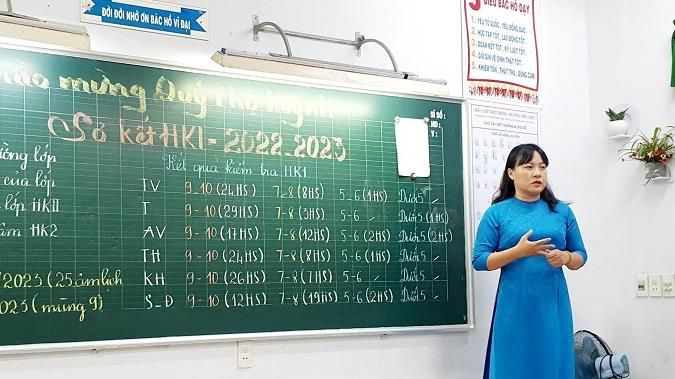 ĐỜI ĐỜI NHỚ ƠN BÁC HỒ VĨ ĐẠI
5 ĐIỀU BÁC HỒ DẠY
1. YÊU TỔ QUỐC, YÊU ĐỒNG BÀO
2. HỌC TẬP TỐT, LAO ĐỘNG TỐT
3. ĐOÀN KẾT TỐT, KỶ LUẬT TỐT
4. GIỮ GÌN VỆ SINH THẬT TỐT
5. KHIÊM TỐN, THẬT THÀ, DŨNG CẢM
mừng Quý
Sơ kết HKI - 2022-2023
SĨ SỐ:
HD:
V:
Kết quả kiểm tra HK1
lớp
của lớp
lớp HKII
HK2
/2023 (25 âm lịch
023 (mùng 9)
TV 9-10 (24HS) 7-8 (8HS) 5-6 (1HS) Dưới 5
T 9-10 (29HS) 7-8 (3HS) 5-6 / Dưới 5 (1HS)
AV 9-10 (17HS) 7-8 (12HS) 5-6 (2HS) Dưới 5 (2HS)
TH 9-10 (24HS) 7-8 (8HS) 5-6 (1HS) Dưới 5 /
KH 9-10 (26HS) 7-8 (7HS) 5-6 / Dưới 5 /
S_Đ 9-10 (12HS) 7-8 (19HS) 5-6 (2HS) Dưới 5 /